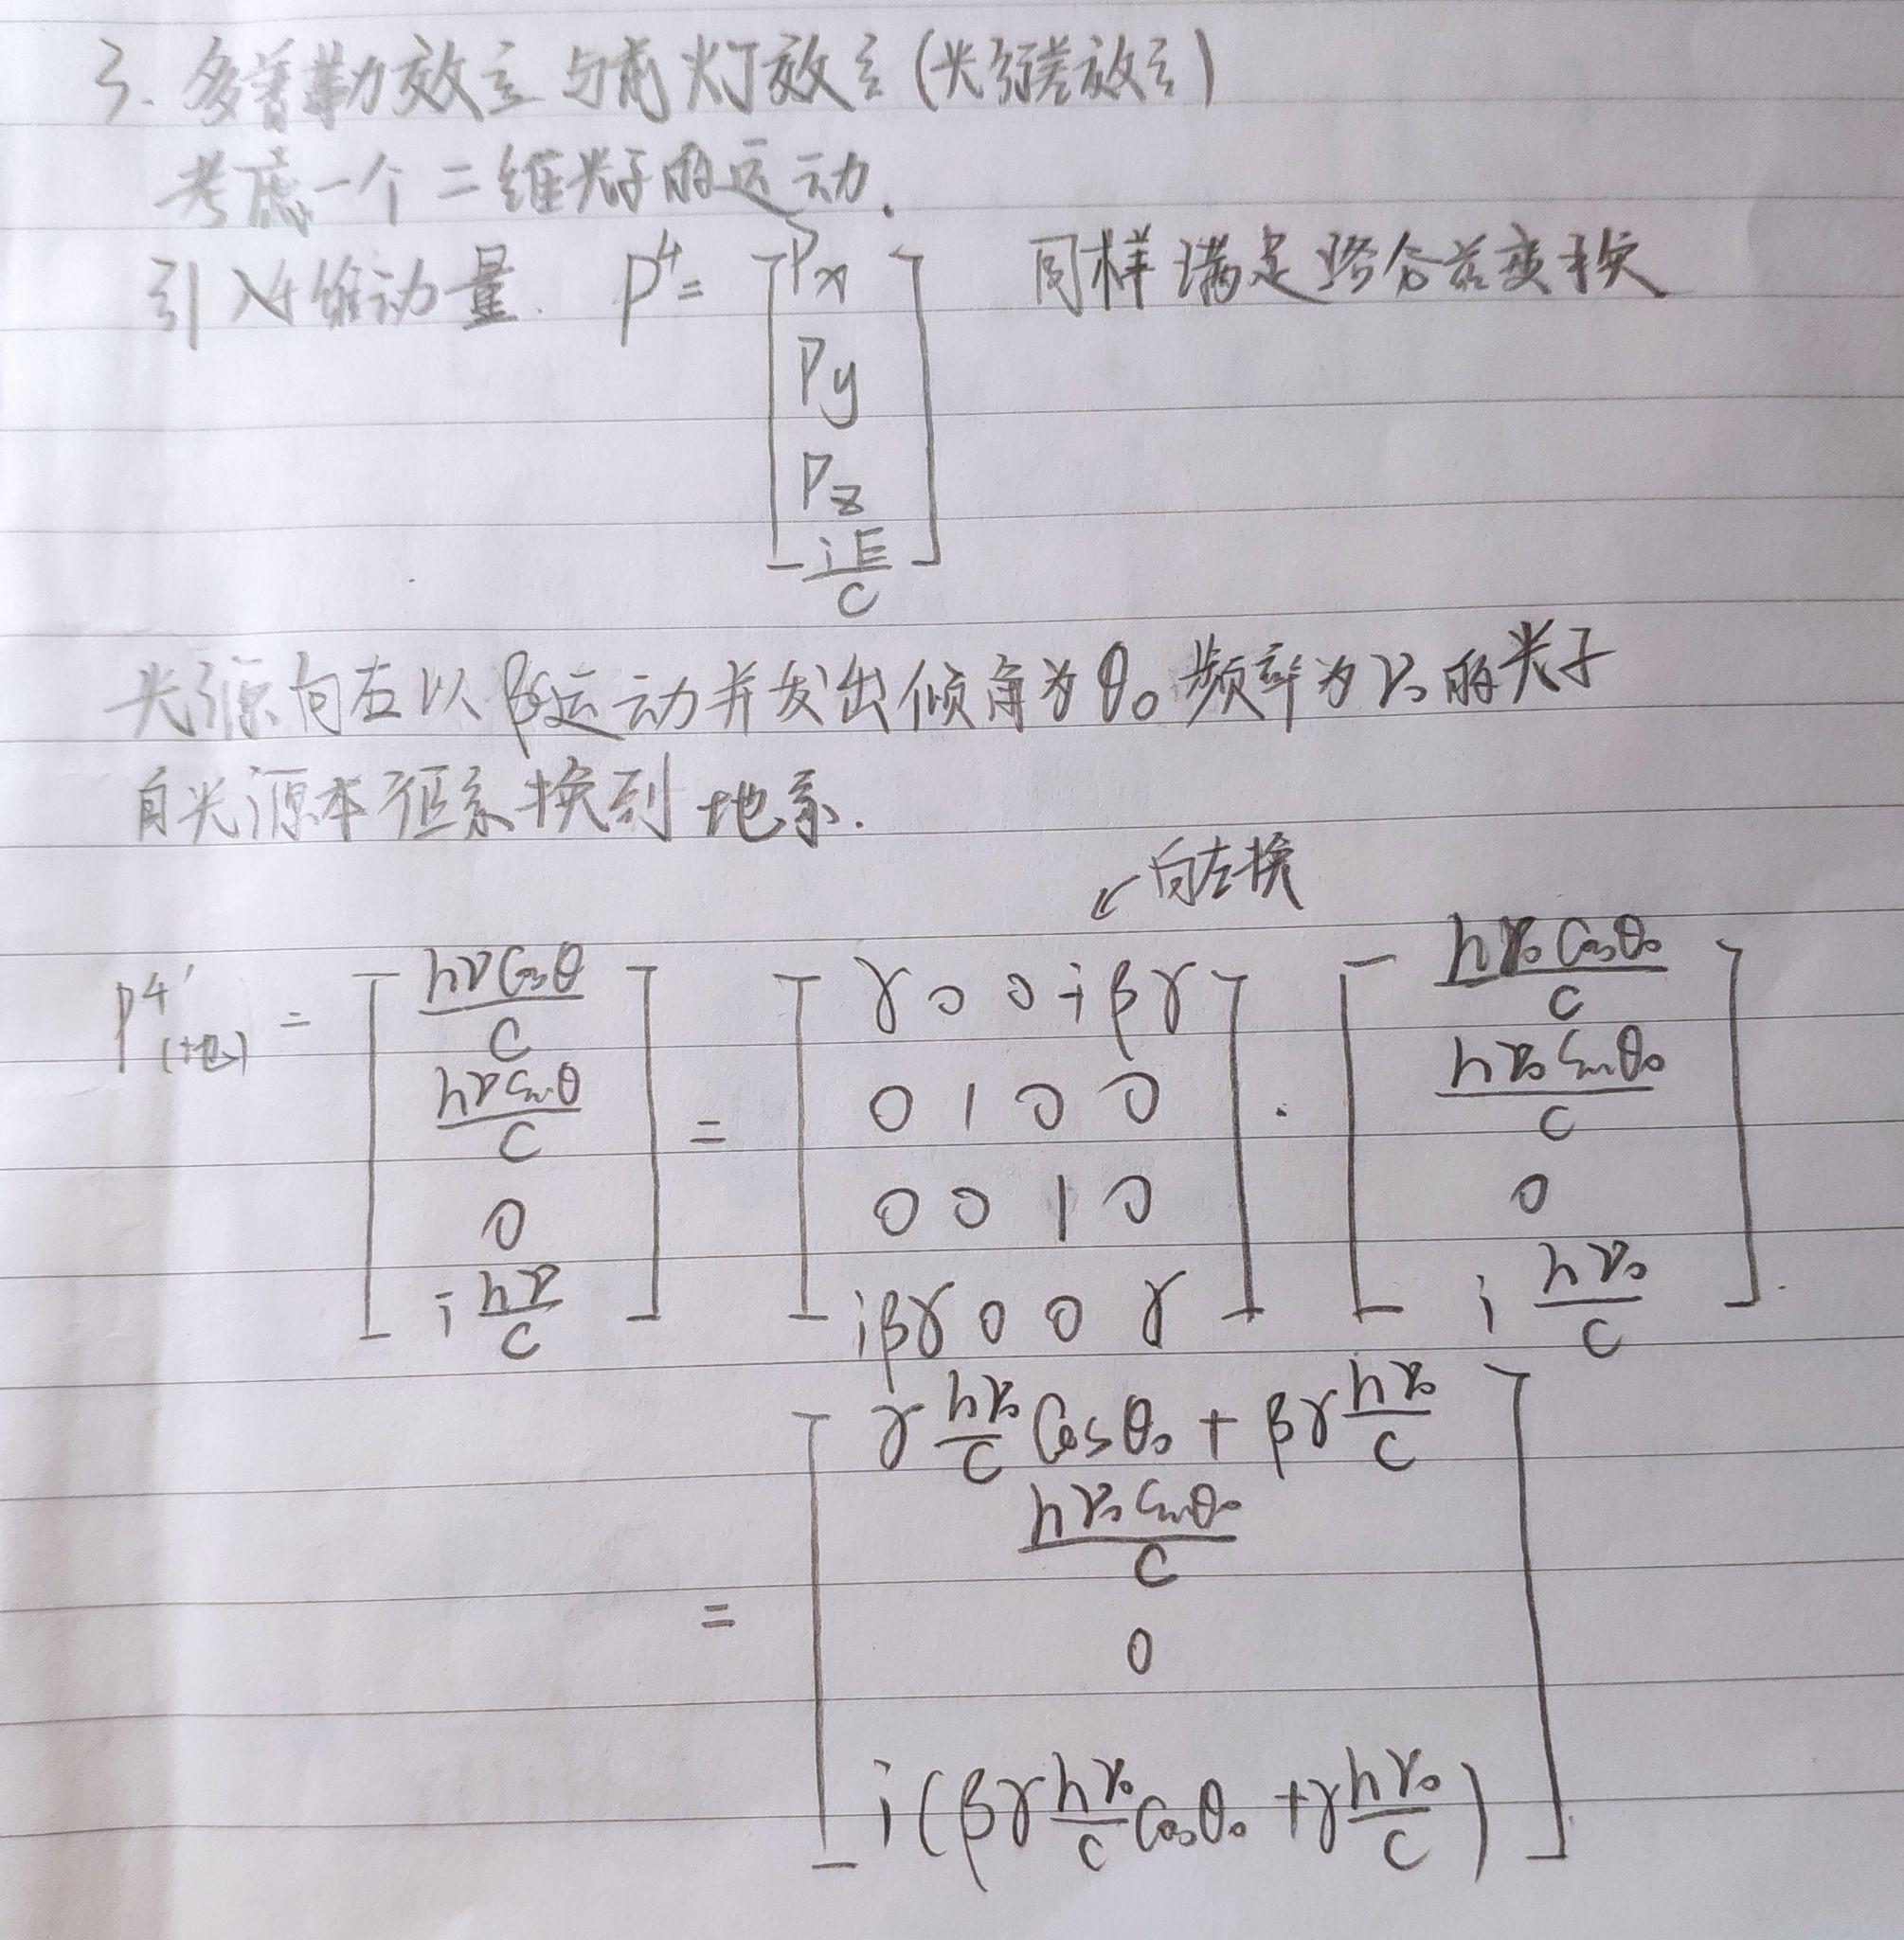 3. 多普勒效应与前灯效应(光行差效应)
考虑一个二维光子的运动.
引入4维动量. P⁴= [Px Py Pz iE/c] 同样满足洛仑兹变换
光源向右以βc运动并发出倾角为θ₀频率为ν₀的光子
自光源本征系换到地系.
↙向左换
P⁴′(地) = [hνCosθ/c hνSinθ/c 0 i hν/c] = [γ 0 0 -iβγ 0 1 0 0 0 0 1 0 iβγ 0 0 γ] · [hν₀Cosθ₀/c hν₀Sinθ₀/c 0 i hν₀/c]
= [γ hν₀/c Cosθ₀ + βγ hν₀/c hν₀Sinθ₀/c 0 i(βγ hν₀/c Cosθ₀ + γ hν₀/c)]